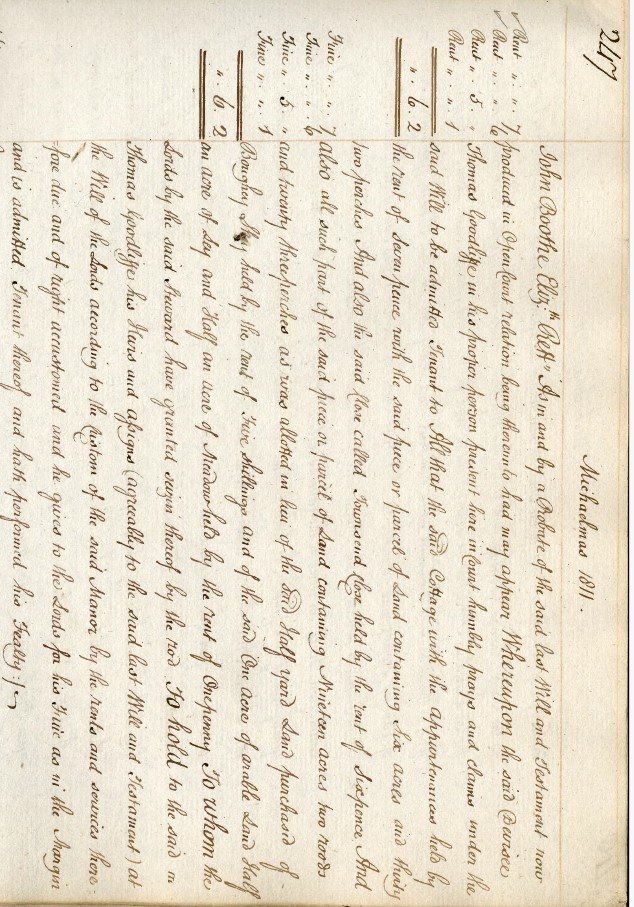 247
Michaelmas 1811.
John Boothe Eliz.th Reffs As in and by a Probate of the said last Will and Testament now
✓ Rent " " 7 produced in Open Court relation being thereunto had may appear Whereupon the said Devisee
✓ Rent " " 6 Thomas Goodlife in his proper person present here in Court humbly prays and claims under the
Rent " 5 " said Will to be admitted Tenant to All that the said Cottage with the appurtenances held by
Rent " " 1 the rent of seven pence with the said piece or parcel of Land containing Six acres and thirty
" 6. 2 two perches And also the said Close called Townsend Close held by the rent of Sixpence And
Fine " " 7 also all such part of the said piece or parcel of Land containing Nineteen acres two roods
Fine " " 6 and twenty three perches as was allotted in lieu of the said Half yard Land purchased of
Fine " 5. " Boughey held by the rent of Five shillings and of the said One acre of arable Land Half
Fine " " 1 an acre of Ley and Half an acre of Meadow held by the rent of One penny To whom the
" 6. 2 Lords by the said Steward have granted seizen thereof by the rod To hold to the said
Thomas Goodlife his Heirs and assigns (agreeably to the said last Will and Testament) at
the Will of the Lords according to the Custom of the said Manor by the rents and services there-
fore due and of right accustomed and he gives to the Lords for his Fine as in the Margin
and is admitted Tenant thereof and hath performed his Fealty :/